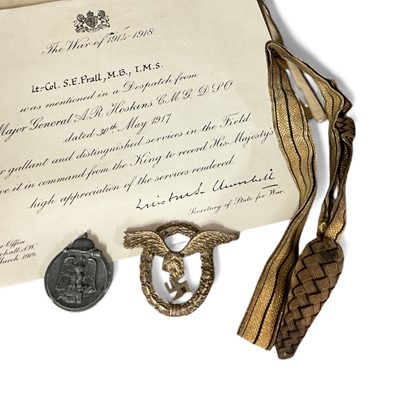 The War of 1914-1918.
Lt-Col. S.E. Prall, M.B., I.M.S.
was mentioned in a Despatch from
Major General A.R. Hoskins C.M.G. D.S.O
dated 30th May 1917
gallant and distinguished services in the Field.
it in command from the King to record His Majesty's
high appreciation of the services rendered.
Winston S. Churchill
Secretary of State for War.
Office
March 1919.